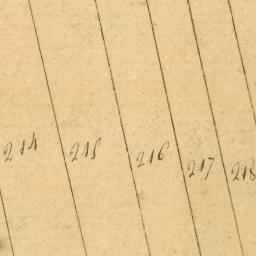 214 215 216 217 218